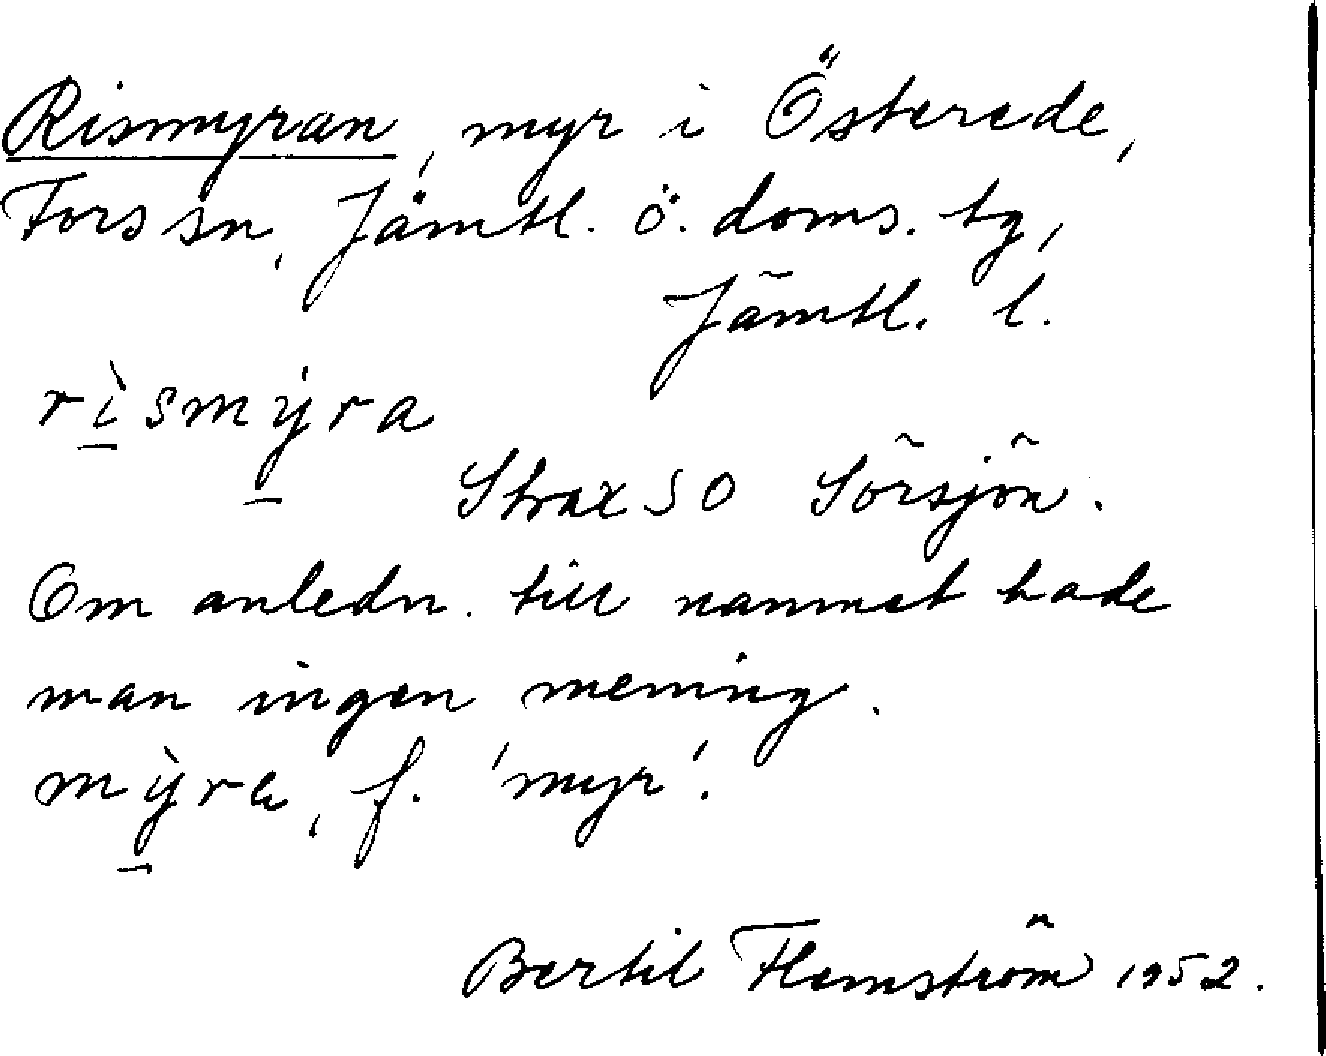 Rismyran, myr i Österede,
Fors sn, Jämtl. ö. doms. tg,
Jämtl. l.
rìsmýra
Strax SO Sörsjön.
Om anledn. till namnet hade
man ingen mening.
mỳra, f. 'myr'.
Bertil Flemström 1952.